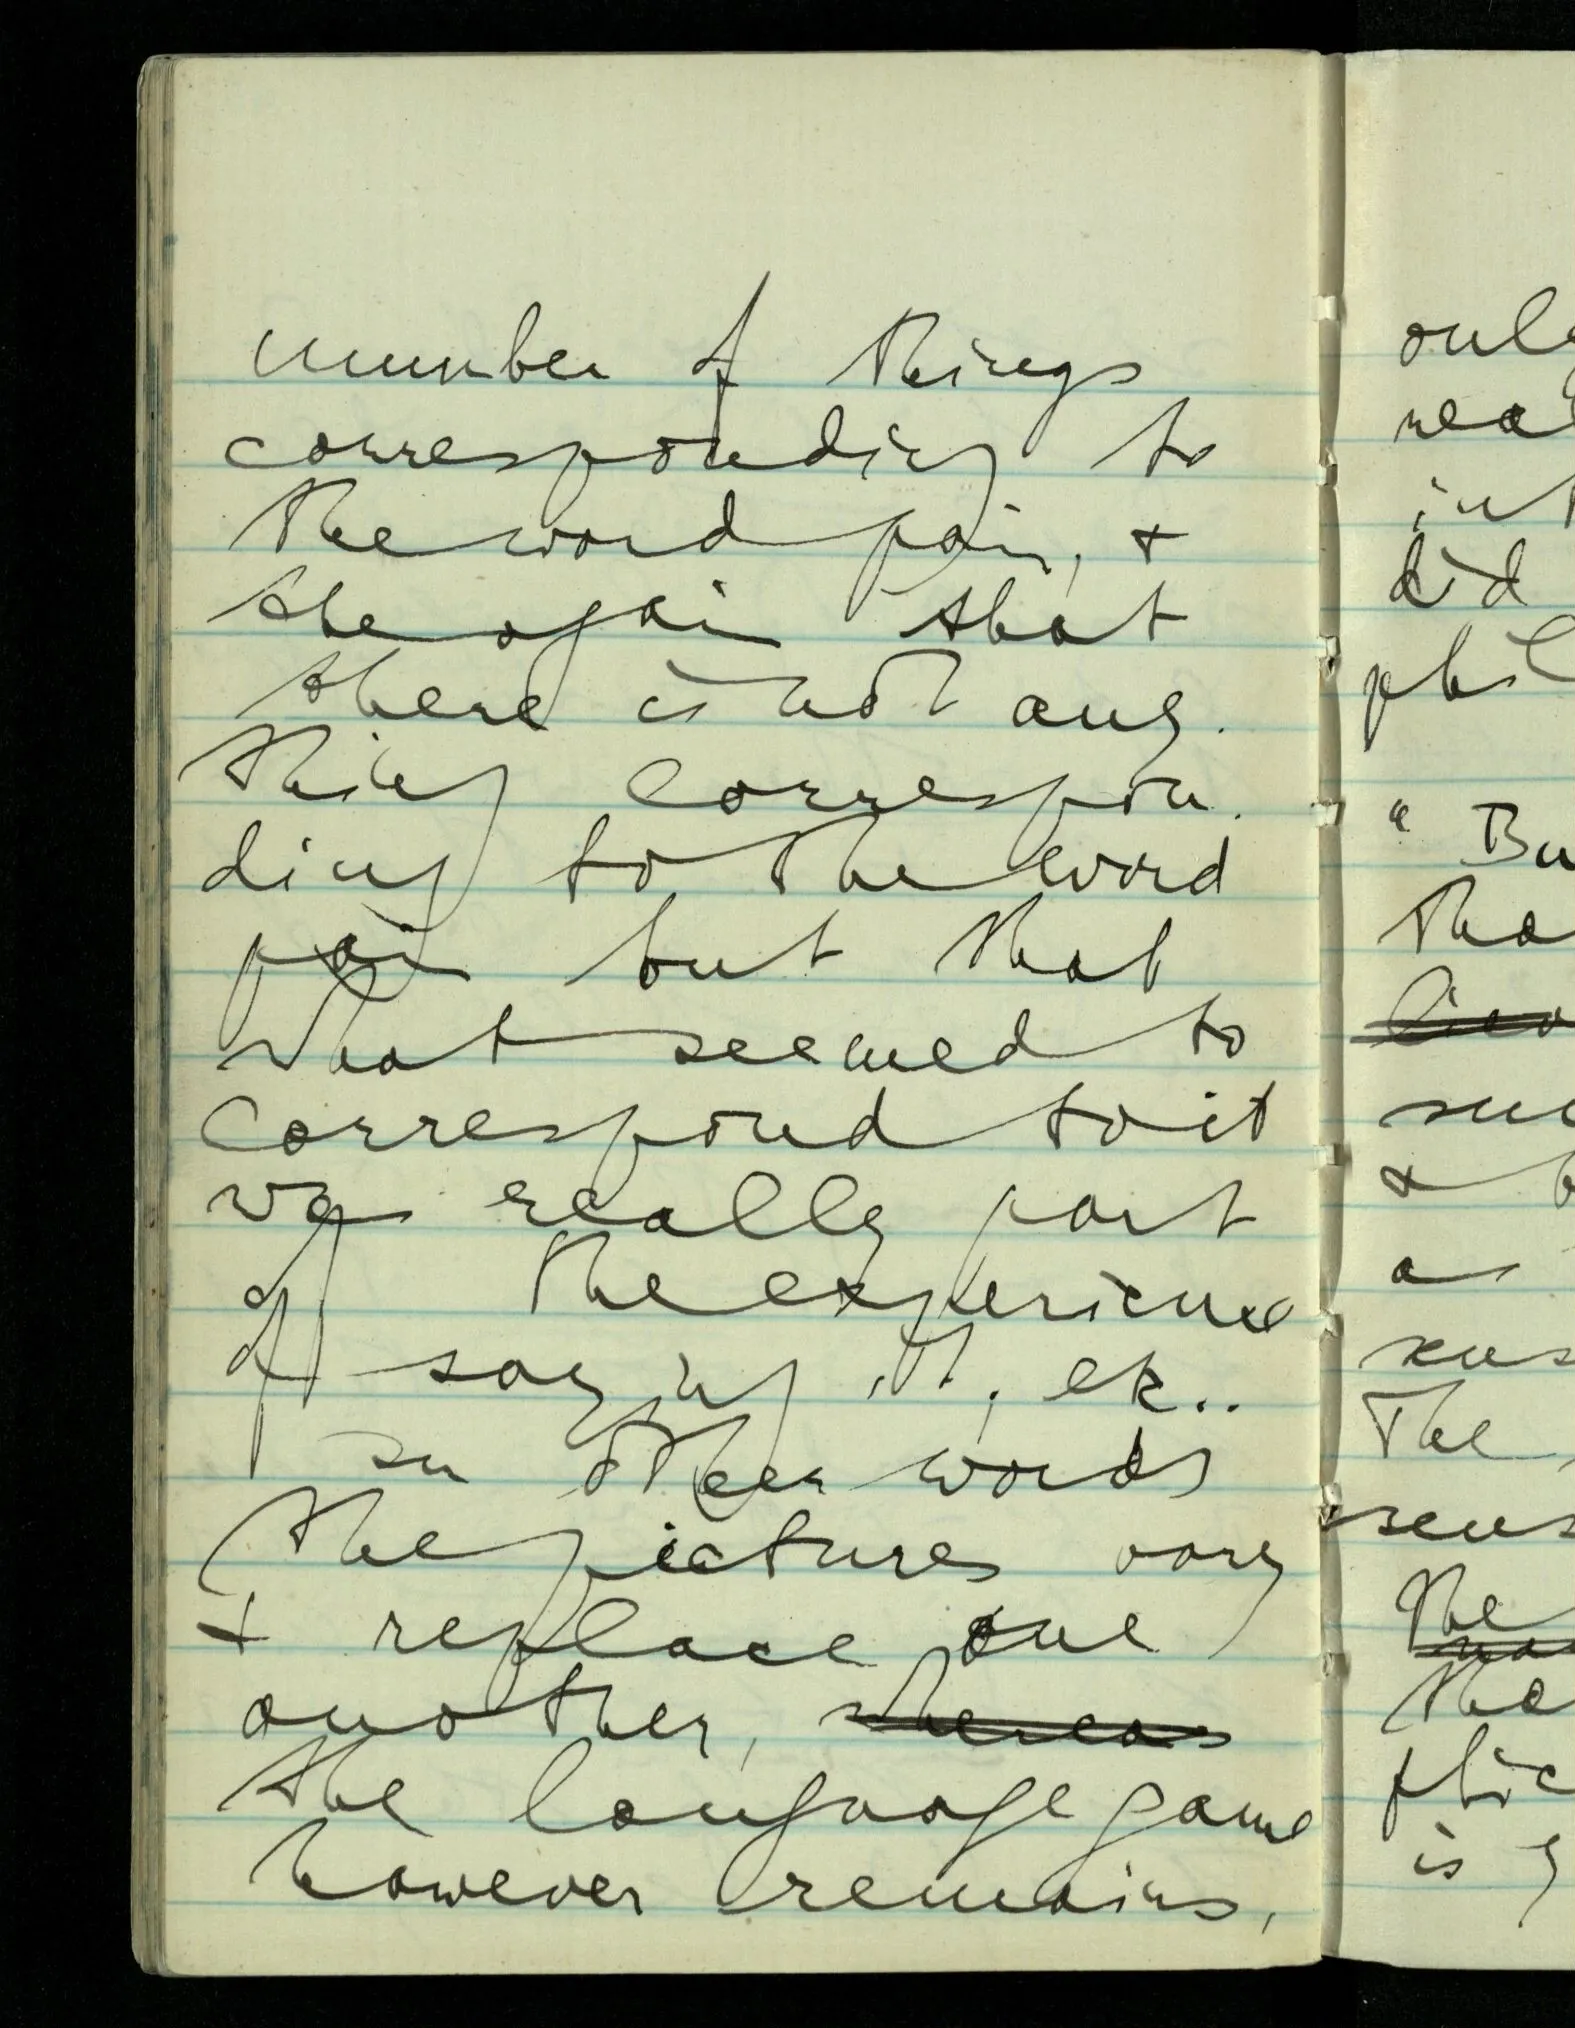 number of things
corresponding to
the word pain, &
the again that
there is not any-
thing correspon-
ding to the word
pain but that
what seemed to
correspond to it
was really part
of the experience
of saying it, etc..
In other words
the pictures vary
& replace one
another, whereas
the language game
however remains,
onl
rea
in t
did
phil
" Bu
tha
suc
& b
as
sens
The
sens
the
tha
phic
is